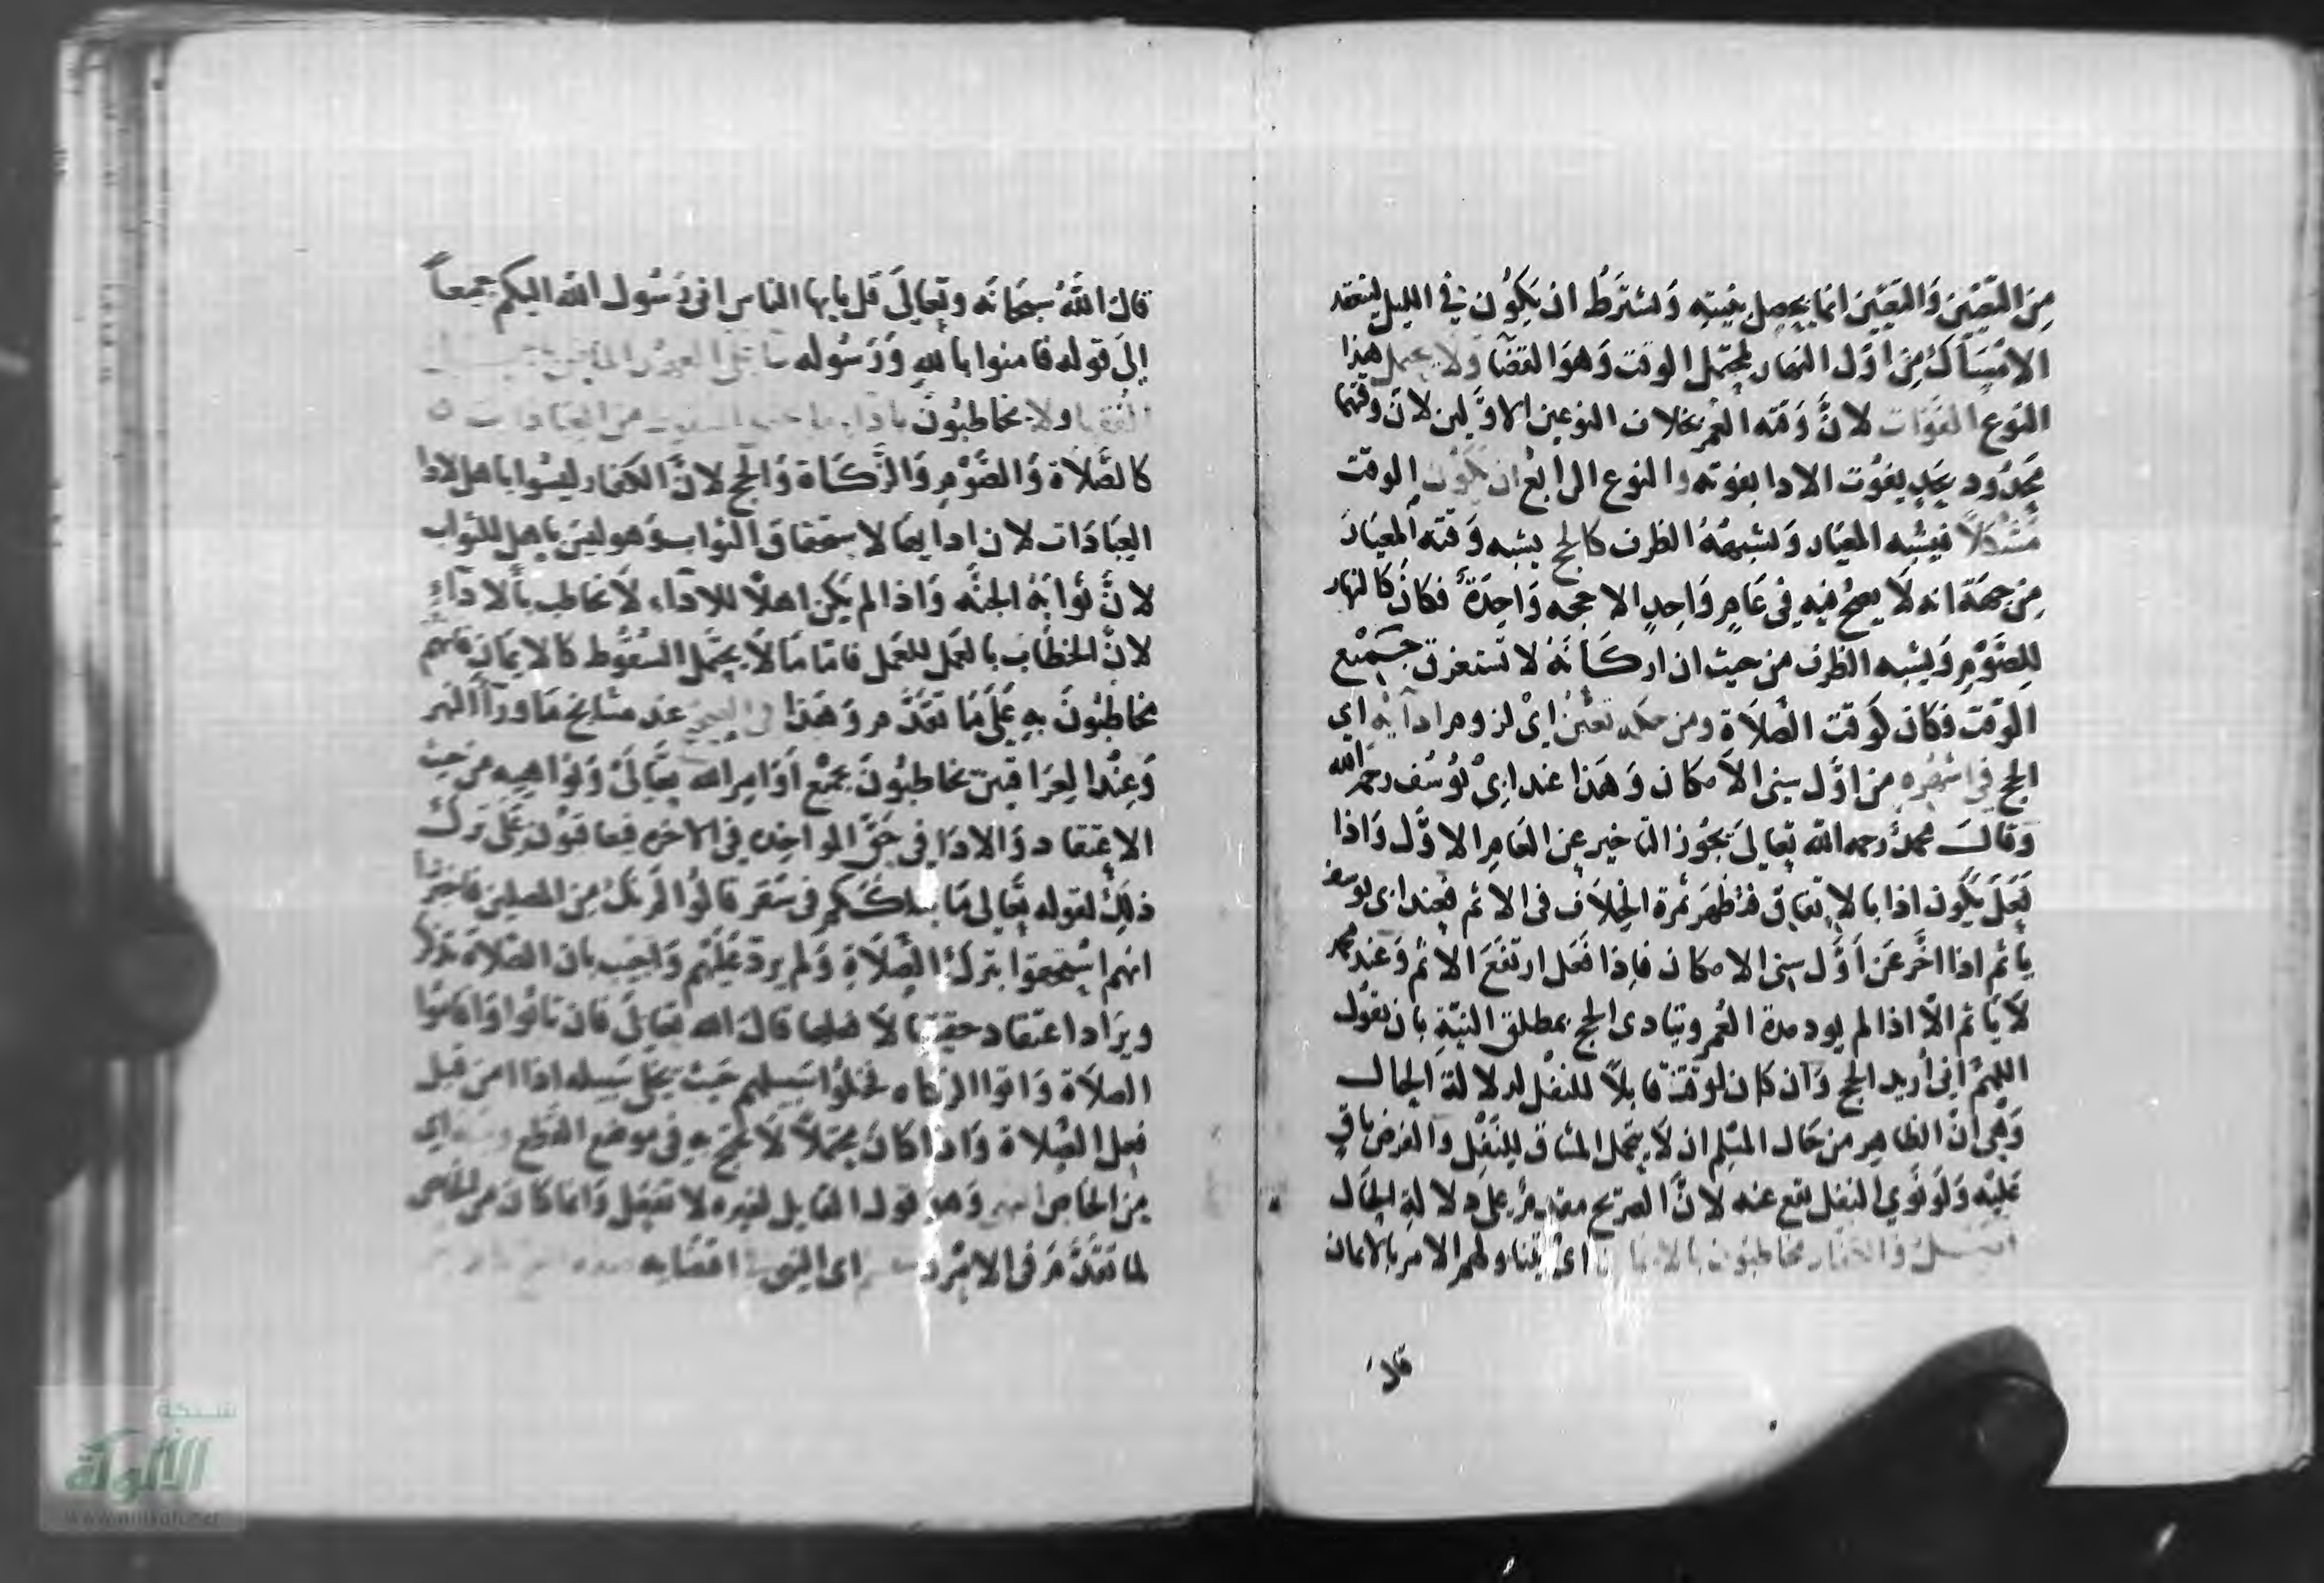 مِنَ التَّعيّن وَالتَعَيّن انما يحصل بنيته وَيشترط ان يكون في الليل لينعقد
الامسَاك مِن اوّل النهار يحتمل الوقت وَهوَ القضَا وَلا يحتمل هذا
النوع الفوَات لانَّ وَقته العمر بخلاف النوعين الاوّلين لان وقتهما
محدُود بحد يفوُت الادا بفوته والنوع الرابع ان يكون الوقت
مُشكلاً فيشبه المعيَار وَيشبهُ الظرف كالحج يشبه وَقته المعيَار
مِن جهَة انه لا يصح فيه في عَامٍ وَاحدٍ الا حجه وَاحدَة فكانَ كالنهار
لِلصَّوْمِ وَيشبه الظرف من حيث ان اركانه لا تستغرق جَميْع
الوَقت فكان كوَقت الصَّلاَةِ ومن حكمه تعيّن اي لزوم ادآئه اي
الحج في اشهُره من اوَّل سني الاَمكان وَهَذا عند ابي يوسُف رحمه الله
وَقالَ محمد رحمه الله تعالىَ يجُوز التاخير عن العَامِ الاوَّل وَاذا
فعَلَ يكون ادا بالاتفاق فتظهَر ثمرة الخِلاَف في الاثم فعند ابي يوسف
ياثم اذا اخّر عَن اَوَّل سني الامكان فاِذا فعَل ارتفَعَ الاثم وَعند محمد
لاَ يَاثم الاّ اذا لم يود مدة العُمر ويتادى الحج بمطلق النيّةِ بان يقول
اللهمّ اني اُريد الحج وَان كان لوقته قابلاً للنفل لدلالة الحال
وَهي انَّ الظاهِر من حَال المسلم ان لاَ يتحمل المشاق لِلنَفْلِ وَالفرض باقٍ
عَليْه وَلوَ نوَي النفل يقع عنه لانَّ الصّريح مقدم علي دلالة الحَال
وَالكفار مخاطبون بالايمان اي يتناولهم الامر بالايمان
قال
قالَ اللَّهُ سبحَانَه وتعَالىَ قل يايها الناس اني رَسُول الله اليكم جميعاً
إلىَ قوله فامنوا باللهِ وَرَسُوله
ولا يخاطبُونَ
كالصَّلاَة وَالصَّوْمِ وَالزَّكَاة وَالحج لانَّ الكفار ليسُوا باهل لادا
العِبَادَات لان اداَيها لاستحقاق الثواب وَهو ليسَ باهل للثواب
لانَّ ثوَابَهُ الجنَّه وَاذا لم يَكن اهلاً للادآء لاَ يخاطب بالادآءِ
لانَّ الخطاَب بالعمَل للعمَل فامّا مَا لاَ يحتمل السقُوط كالايمَان فانهم
مخاطبُونَ بهِ علىَ مَا تقَدَّمَ وَهَذا في الصحيح عند مشايخ مَا ورآاَ النهر
وَعِنْد العرَاقيين يخاطبُونَ بجَميْع اَوَامِر الله تعَالىَ وَنوَاهِيه من حَيث
الاعتقاد وَالادَا في حَقِّ المواخذه في الاخره فيعاقبون عَلىَ ترك
ذلِكَ لقوله تعَالى مَا سَلكَكم في سَقر قالُوا لَم نك مِن المصلين فاخبَرُوا
انهم استحقوا بتركِ الصَّلاَةِ وَلم يرد عَليْهم وَاجيب بان الصَّلاَة تذكر
ويرَاد اعتقاد حقيتها لاَ فعلها قالَ الله تعَالىَ فان تابُوا وَاقامُوا
الصلاَة وَاتوا الزكاه فخلُوا سَبيلهم حَيث يخلى سَبيله اذا امن قبل
فعل الصَّلاة وَاذا كانَ محتمَلاً لاَ يحتج بهِ في موضع القطع ومنه اي
مِن الخَاص النهي وَهوَ قول القايل لغيره لا تفعَل وَانما كانَ من الخاص
لما تقدَّمَ في الامْر اي النهي اقتضَايه